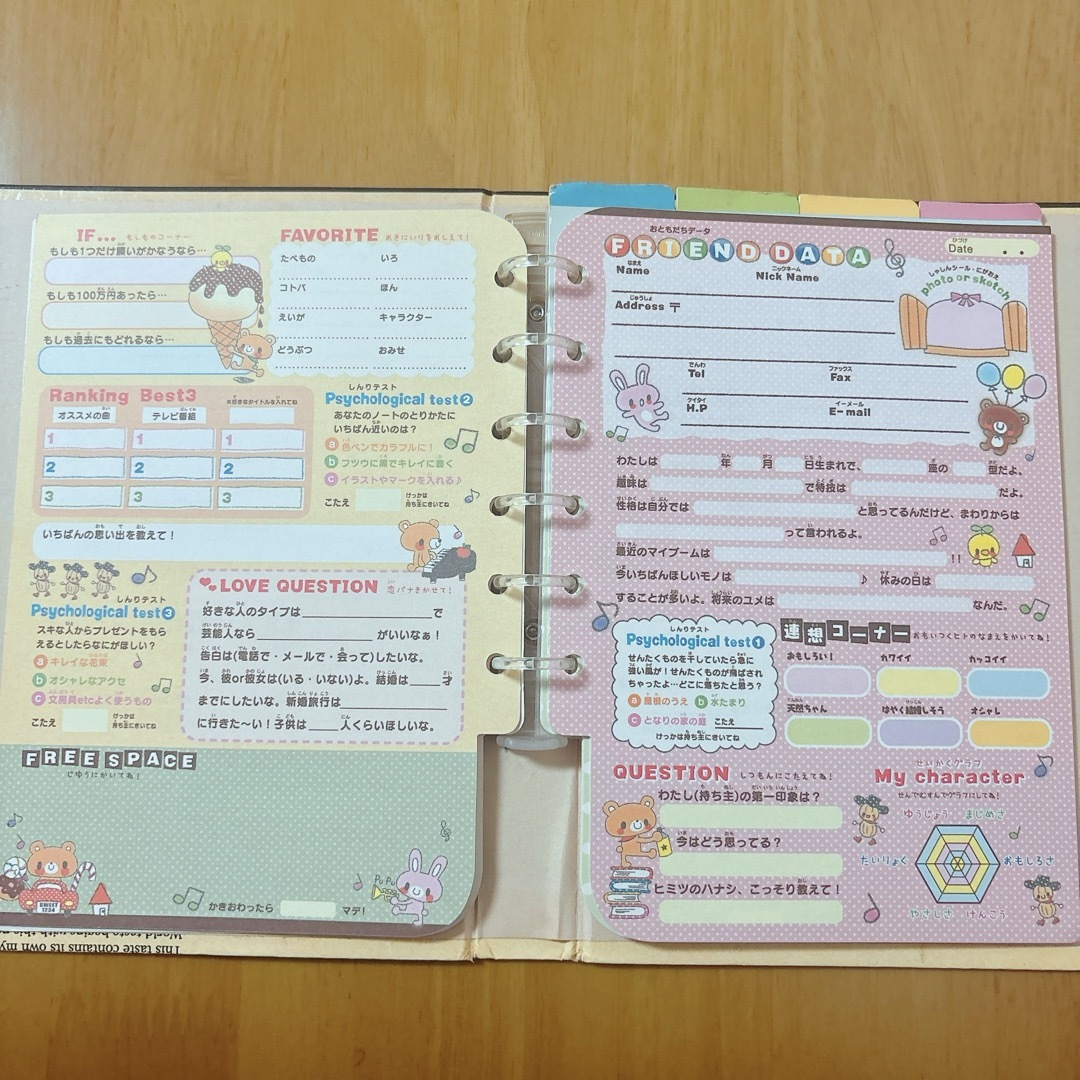 IF... もしものコーナー
もしも1つだけ願いがかなうなら…
もしも100万円あったら…
もしも過去にもどれるなら…
FAVORITE おきにいりをおしえて!
たべもの いろ
コトバ ほん
えいが キャラクター
どうぶつ おみせ
Ranking Best3
オススメの曲 テレビ番組 ※好きなタイトルを入れてね
1 1 1
2 2 2
3 3 3
しんりテスト
Psychological test2
あなたのノートのとりかたに
いちばん近いのは?
a 色ペンでカラフルに!
b フツウに黒でキレイに書く
c イラストやマークを入れる♪
こたえ けっかは持ち主にきいてね
いちばんの思い出を教えて!
しんりテスト
Psychological test3
スキな人からプレゼントをもら
えるとしたらなにがほしい?
a キレイな花束
b オシャレなアクセ
c 文房具etcよく使うもの
こたえ けっかは持ち主にきいてね
LOVE QUESTION 恋バナきかせて!
好きな人のタイプは で
芸能人なら がいいなぁ!
告白は(電話で・メールで・会って)したいな。
今、彼or彼女は(いる・いない)よ。結婚は 才
までにしたいな。新婚旅行は
に行きた〜い!子供は 人くらいほしいな。
FREE SPACE
じゆうにかいてね!
SWEET
1234
かきおわったら マデ!
Pu Pu
おともだちデータ
FRIEND DATA
ひづけ
Date
なまえ ニックネーム
Name Nick Name
じゅうしょ
Address 〒
でんわ ファックス
Tel Fax
ケイタイ イーメール
H.P E-mail
しゃしんシール・にがおえ
photo or sketch
わたしは 年 月 日生まれで、 座の 型だよ。
趣味は で特技は だよ。
性格は自分では と思ってるんだけど、まわりからは
って言われるよ。
最近のマイブームは !!
今いちばんほしいモノは ♪ 休みの日は
することが多いよ。将来のユメは なんだ。
しんりテスト
Psychological test1
せんたくものを干していたら急に
強い風が!せんたくものが飛ばされ
ちゃったよ…どこに落ちたと思う?
a 屋根のうえ b 水たまり
c となりの家の庭 こたえ
けっかは持ち主にきいてね
連想コーナー おもいつくヒトのなまえをかいてね!
おもしろい! カワイイ カッコイイ
天然ちゃん はやく結婚しそう オシャレ
QUESTION しつもんにこたえてね!
わたし(持ち主)の第一印象は?
今はどう思ってる?
ヒミツのハナシ、こっそり教えて!
せいかくグラフ
My character
せんでむすんでグラフにしてね!
ゆうじょう まじめさ
たいりょく おもしろさ
やさしさ けんこう
This taste contains its own my